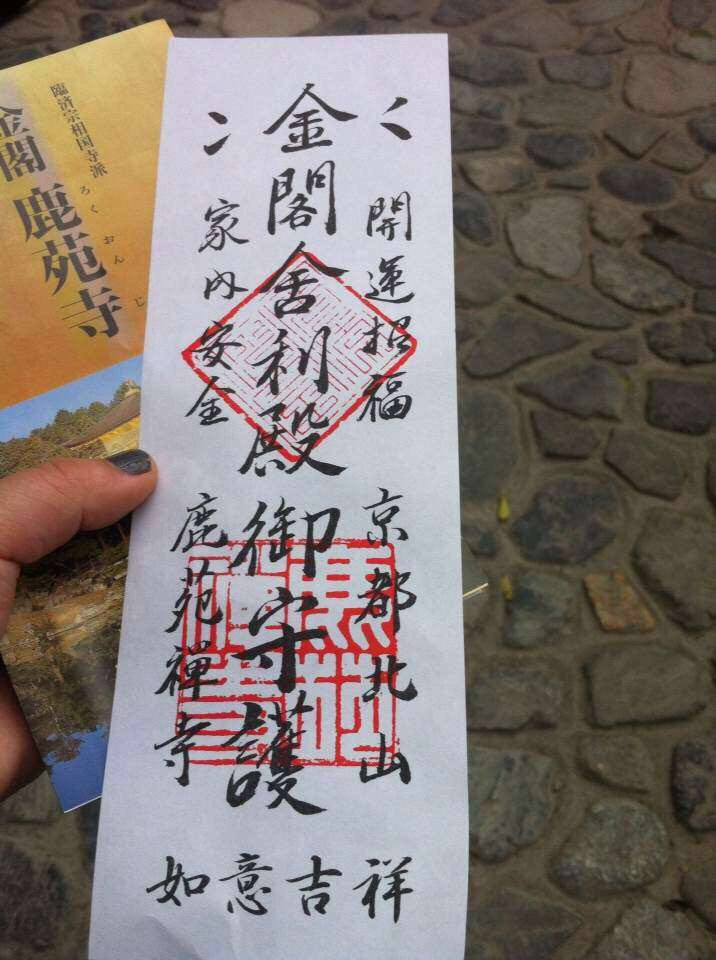 臨済宗相国寺派
金閣 鹿苑寺
ろくおんじ
開運招福
京都北山
金閣舎利殿
御守護
家内安全
鹿苑禅寺
如意吉祥